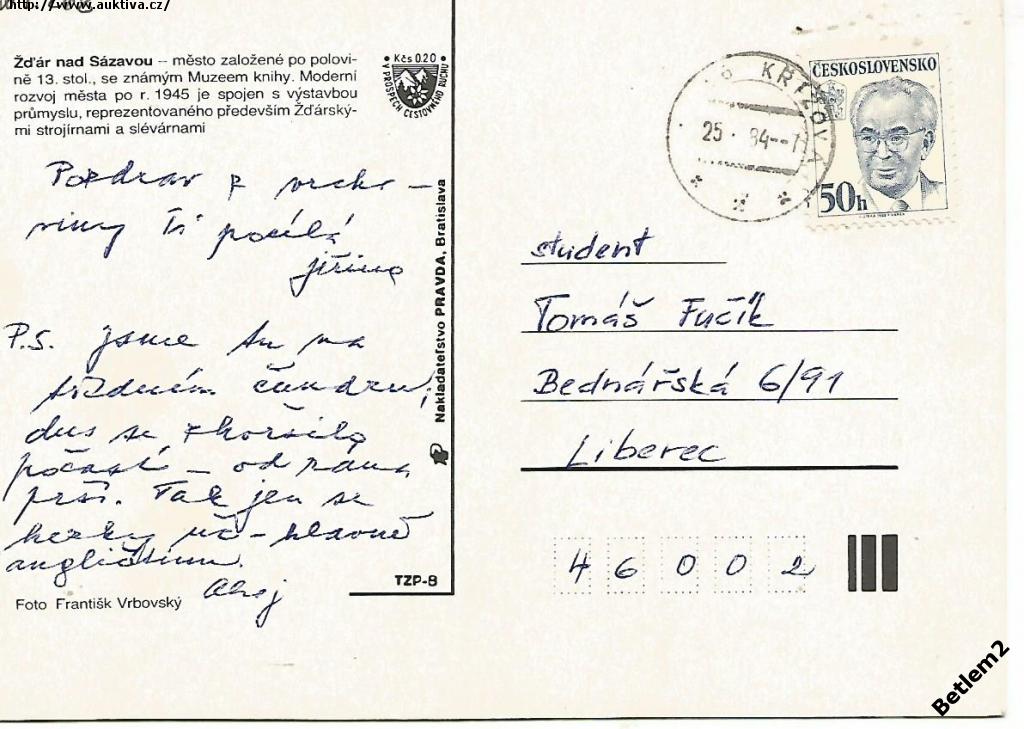 http://www.auktiva.cz/
Žďár nad Sázavou – město založené po polovi-
ně 13. stol., se známým Muzeem knihy. Moderní
rozvoj města po r. 1945 je spojen s výstavbou
průmyslu, reprezentovaného především Žďárský-
mi strojírnami a slévárnami
Kčs 0.20
V PROSPĚCH CESTOVNÉHO RUCHU
Pozdrav z vrcho-
viny Ti posílá
Jiřina
P.S. Jsme tu na
týdenním čundru,
dnes se zhoršilo
počasí – od rána
prší. Tak jen se
hezky uč – hlavně
angličtinu.
Ahoj
Foto František Vrbovský
TZP-8
Nakladateľstvo PRAVDA, Bratislava
KŘIŽOVÁ
25. 84--7
ČESKOSLOVENSKO
50h
student
Tomáš Fučík
Bednářská 6/91
Liberec
46002
Betlem2